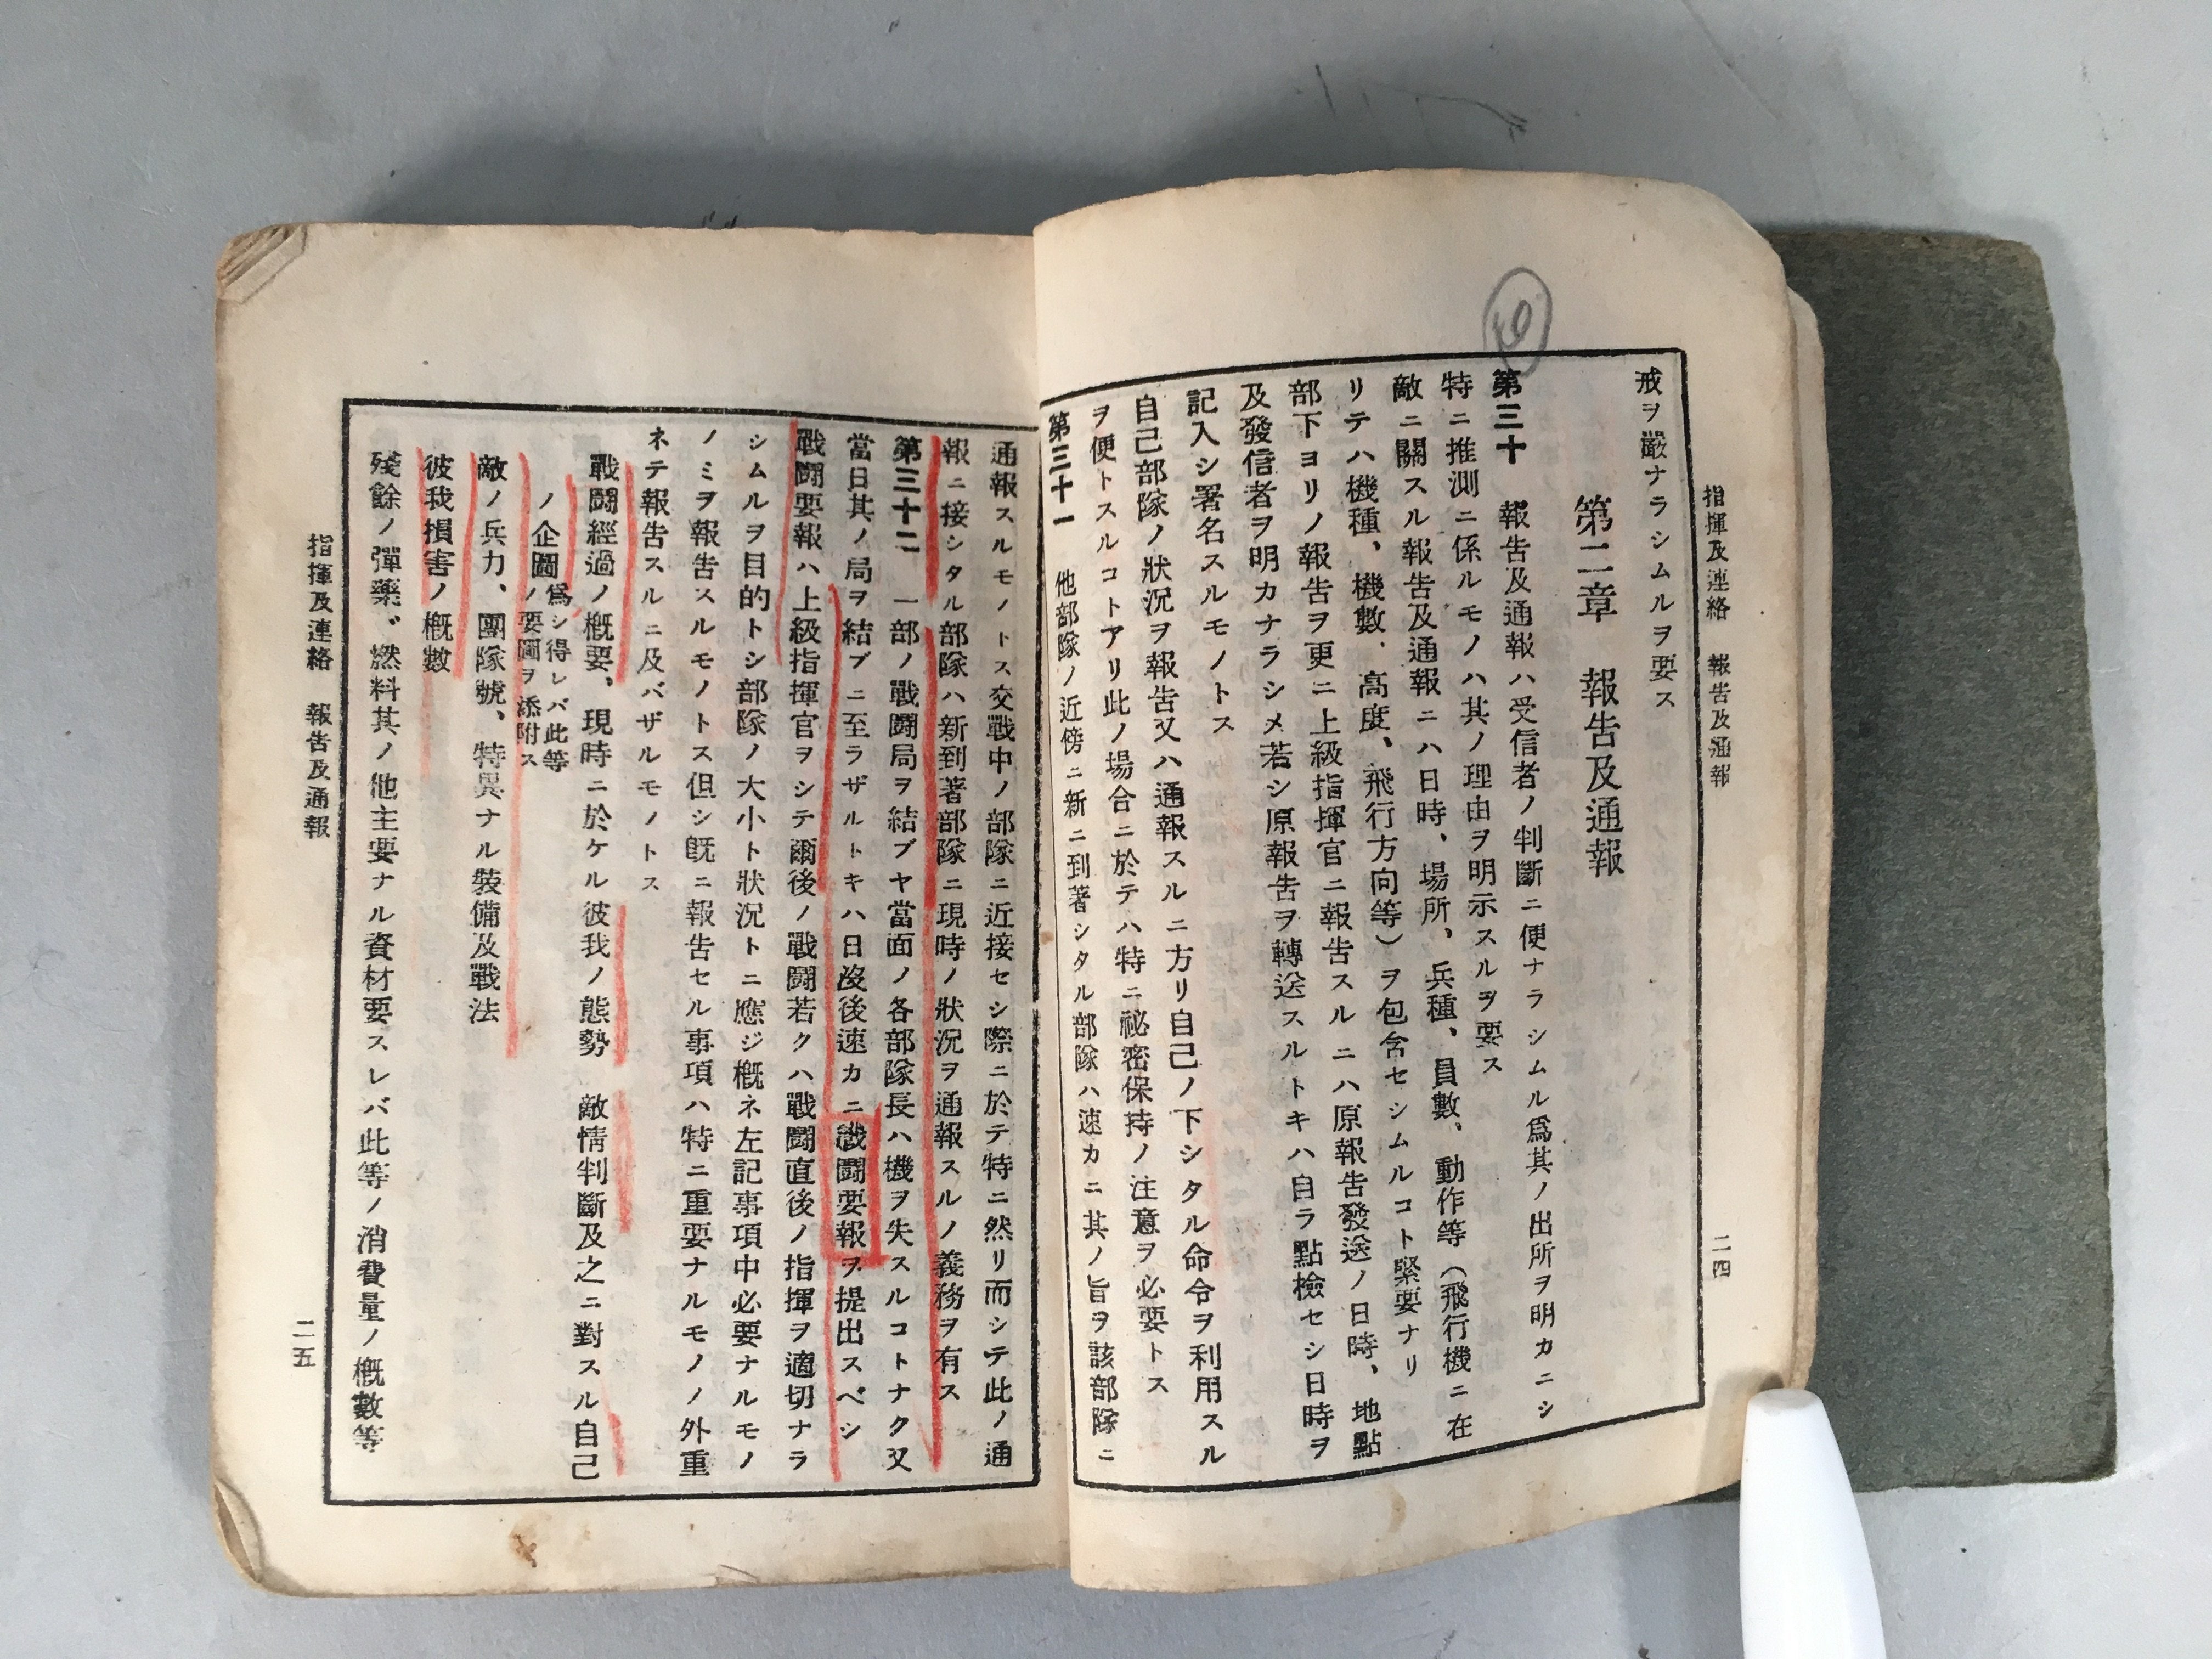 指揮及連絡　報告及通報　二四
戒ヲ嚴ナラシムルヲ要ス
第二章　報告及通報
第三十　報告及通報ハ受信者ノ判斷ニ便ナラシムル爲其ノ出所ヲ明カニシ
特ニ推測ニ係ルモノハ其ノ理由ヲ明示スルヲ要ス
敵ニ關スル報告及通報ニハ日時、場所、兵種、員數、動作等（飛行機ニ在
リテハ機種、機數、高度、飛行方向等）ヲ包含セシムルコト緊要ナリ
部下ヨリノ報告ヲ更ニ上級指揮官ニ報告スルニハ原報告發送ノ日時、地點
及發信者ヲ明カナラシメ若シ原報告ヲ轉送スルトキハ自ラ點檢セシ日時ヲ
記入シ署名スルモノトス
自己部隊ノ狀況ヲ報告又ハ通報スルニ方リ自己ノ下シタル命令ヲ利用スル
ヲ便トスルコトアリ此ノ場合ニ於テハ特ニ祕密保持ノ注意ヲ必要トス
第三十一　他部隊ノ近傍ニ新ニ到著シタル部隊ハ速カニ其ノ旨ヲ該部隊ニ
通報スルモノトス交戰中ノ部隊ニ近接セシ際ニ於テ特ニ然リ而シテ此ノ通
報ニ接シタル部隊ハ新到著部隊ニ現時ノ狀況ヲ通報スルノ義務ヲ有ス
第三十二　一部ノ戰鬪局ヲ結ブヤ當面ノ各部隊長ハ機ヲ失スルコトナク又
當日其ノ局ヲ結ブニ至ラザルトキハ日沒後速カニ戰鬪要報ヲ提出スベシ
戰鬪要報ハ上級指揮官ヲシテ爾後ノ戰鬪若クハ戰鬪直後ノ指揮ヲ適切ナラ
シムルヲ目的トシ部隊ノ大小ト狀況トニ應ジ概ネ左記事項中必要ナルモノ
ノミヲ報告スルモノトス但シ旣ニ報告セル事項ハ特ニ重要ナルモノノ外重
ネテ報告スルニ及バザルモノトス
戰鬪經過ノ概要、現時ニ於ケル彼我ノ態勢　敵情判斷及之ニ對スル自己
ノ企圖
爲シ得レバ此等
ノ要圖ヲ添附ス
敵ノ兵力、團隊號、特異ナル裝備及戰法
彼我損害ノ概數
殘餘ノ彈藥、燃料其ノ他主要ナル資材要スレバ此等ノ消費量ノ概數等
指揮及連絡　報告及通報　二五